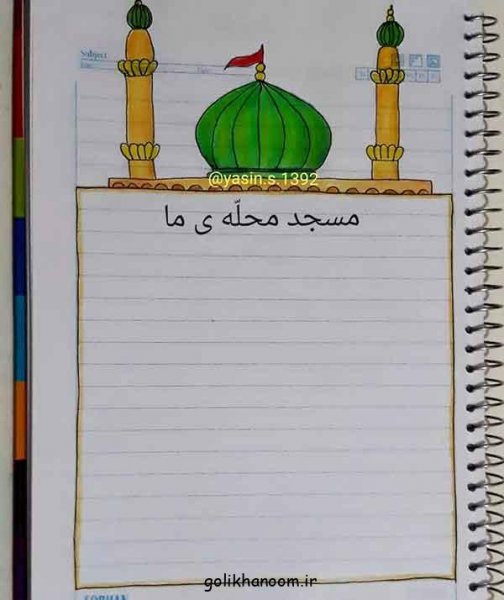 Subject
Date:
@yasin.s.1392
مسجد محلّه ی ما
SOBHAN
golikhanoom.ir